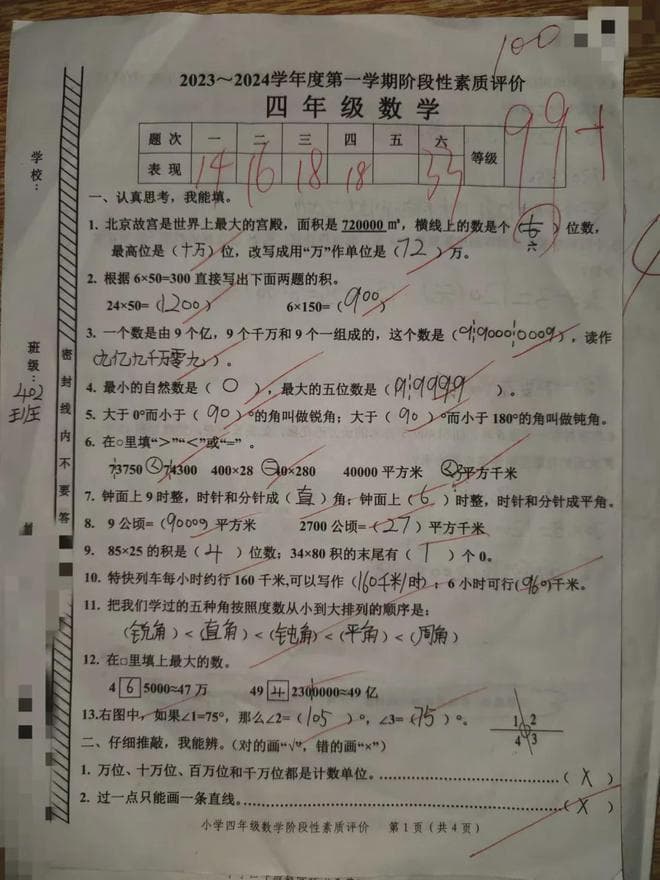 100
2023～2024学年度第一学期阶段性素质评价
四年级数学
题次 一 二 三 四 五 六 等级 99+
表现 14 16 18 18 33
学校：
班级：402班
密封线内不要答
一、认真思考，我能填。
1. 北京故宫是世界上最大的宫殿，面积是 720000 ㎡，横线上的数是个（ 六 ）位数，
最高位是（十万）位，改写成用“万”作单位是（72）万。
2. 根据 6×50=300 直接写出下面两题的积。
24×50=（1200） 6×150=（900）
3. 一个数是由 9 个亿，9 个千万和 9 个一组成的，这个数是（990000009），读作
（九亿九千万零九）。
4. 最小的自然数是（ 0 ），最大的五位数是（99999）。
5. 大于 0°而小于（ 90 ）°的角叫做锐角；大于（ 90 ）°而小于 180°的角叫做钝角。
6. 在○里填“>”“<”或“=” 。
73750 < 74300 400×28 = 40×280 40000 平方米 < 3平方千米
7. 钟面上 9 时整，时针和分针成（直）角；钟面上（6）时整，时针和分针成平角。
8. 9 公顷=（90000）平方米 2700 公顷=（27）平方千米
9. 85×25 的积是（ 4 ）位数；34×80 积的末尾有（ 1 ）个 0。
10. 特快列车每小时约行 160 千米,可以写作（160千米/时）；6 小时可行(960)千米。
11. 把我们学过的五种角按照度数从小到大排列的顺序是：
（锐角）<（直角）<（钝角）<（平角）<（周角）
12. 在□里填上最大的数。
4 6 5000≈47 万 49 4 2300000≈49 亿
13.右图中，如果∠1=75°，那么∠2=（105）°，∠3=（75）°。
1 2
4 3
二、仔细推敲，我能辨。（对的画“√”，错的画“×”）
1. 万位、十万位、百万位和千万位都是计数单位。……………………（ × ）
2. 过一点只能画一条直线。……………………………………（ × ）
小学四年级数学阶段性素质评价 第 1 页（共 4 页）